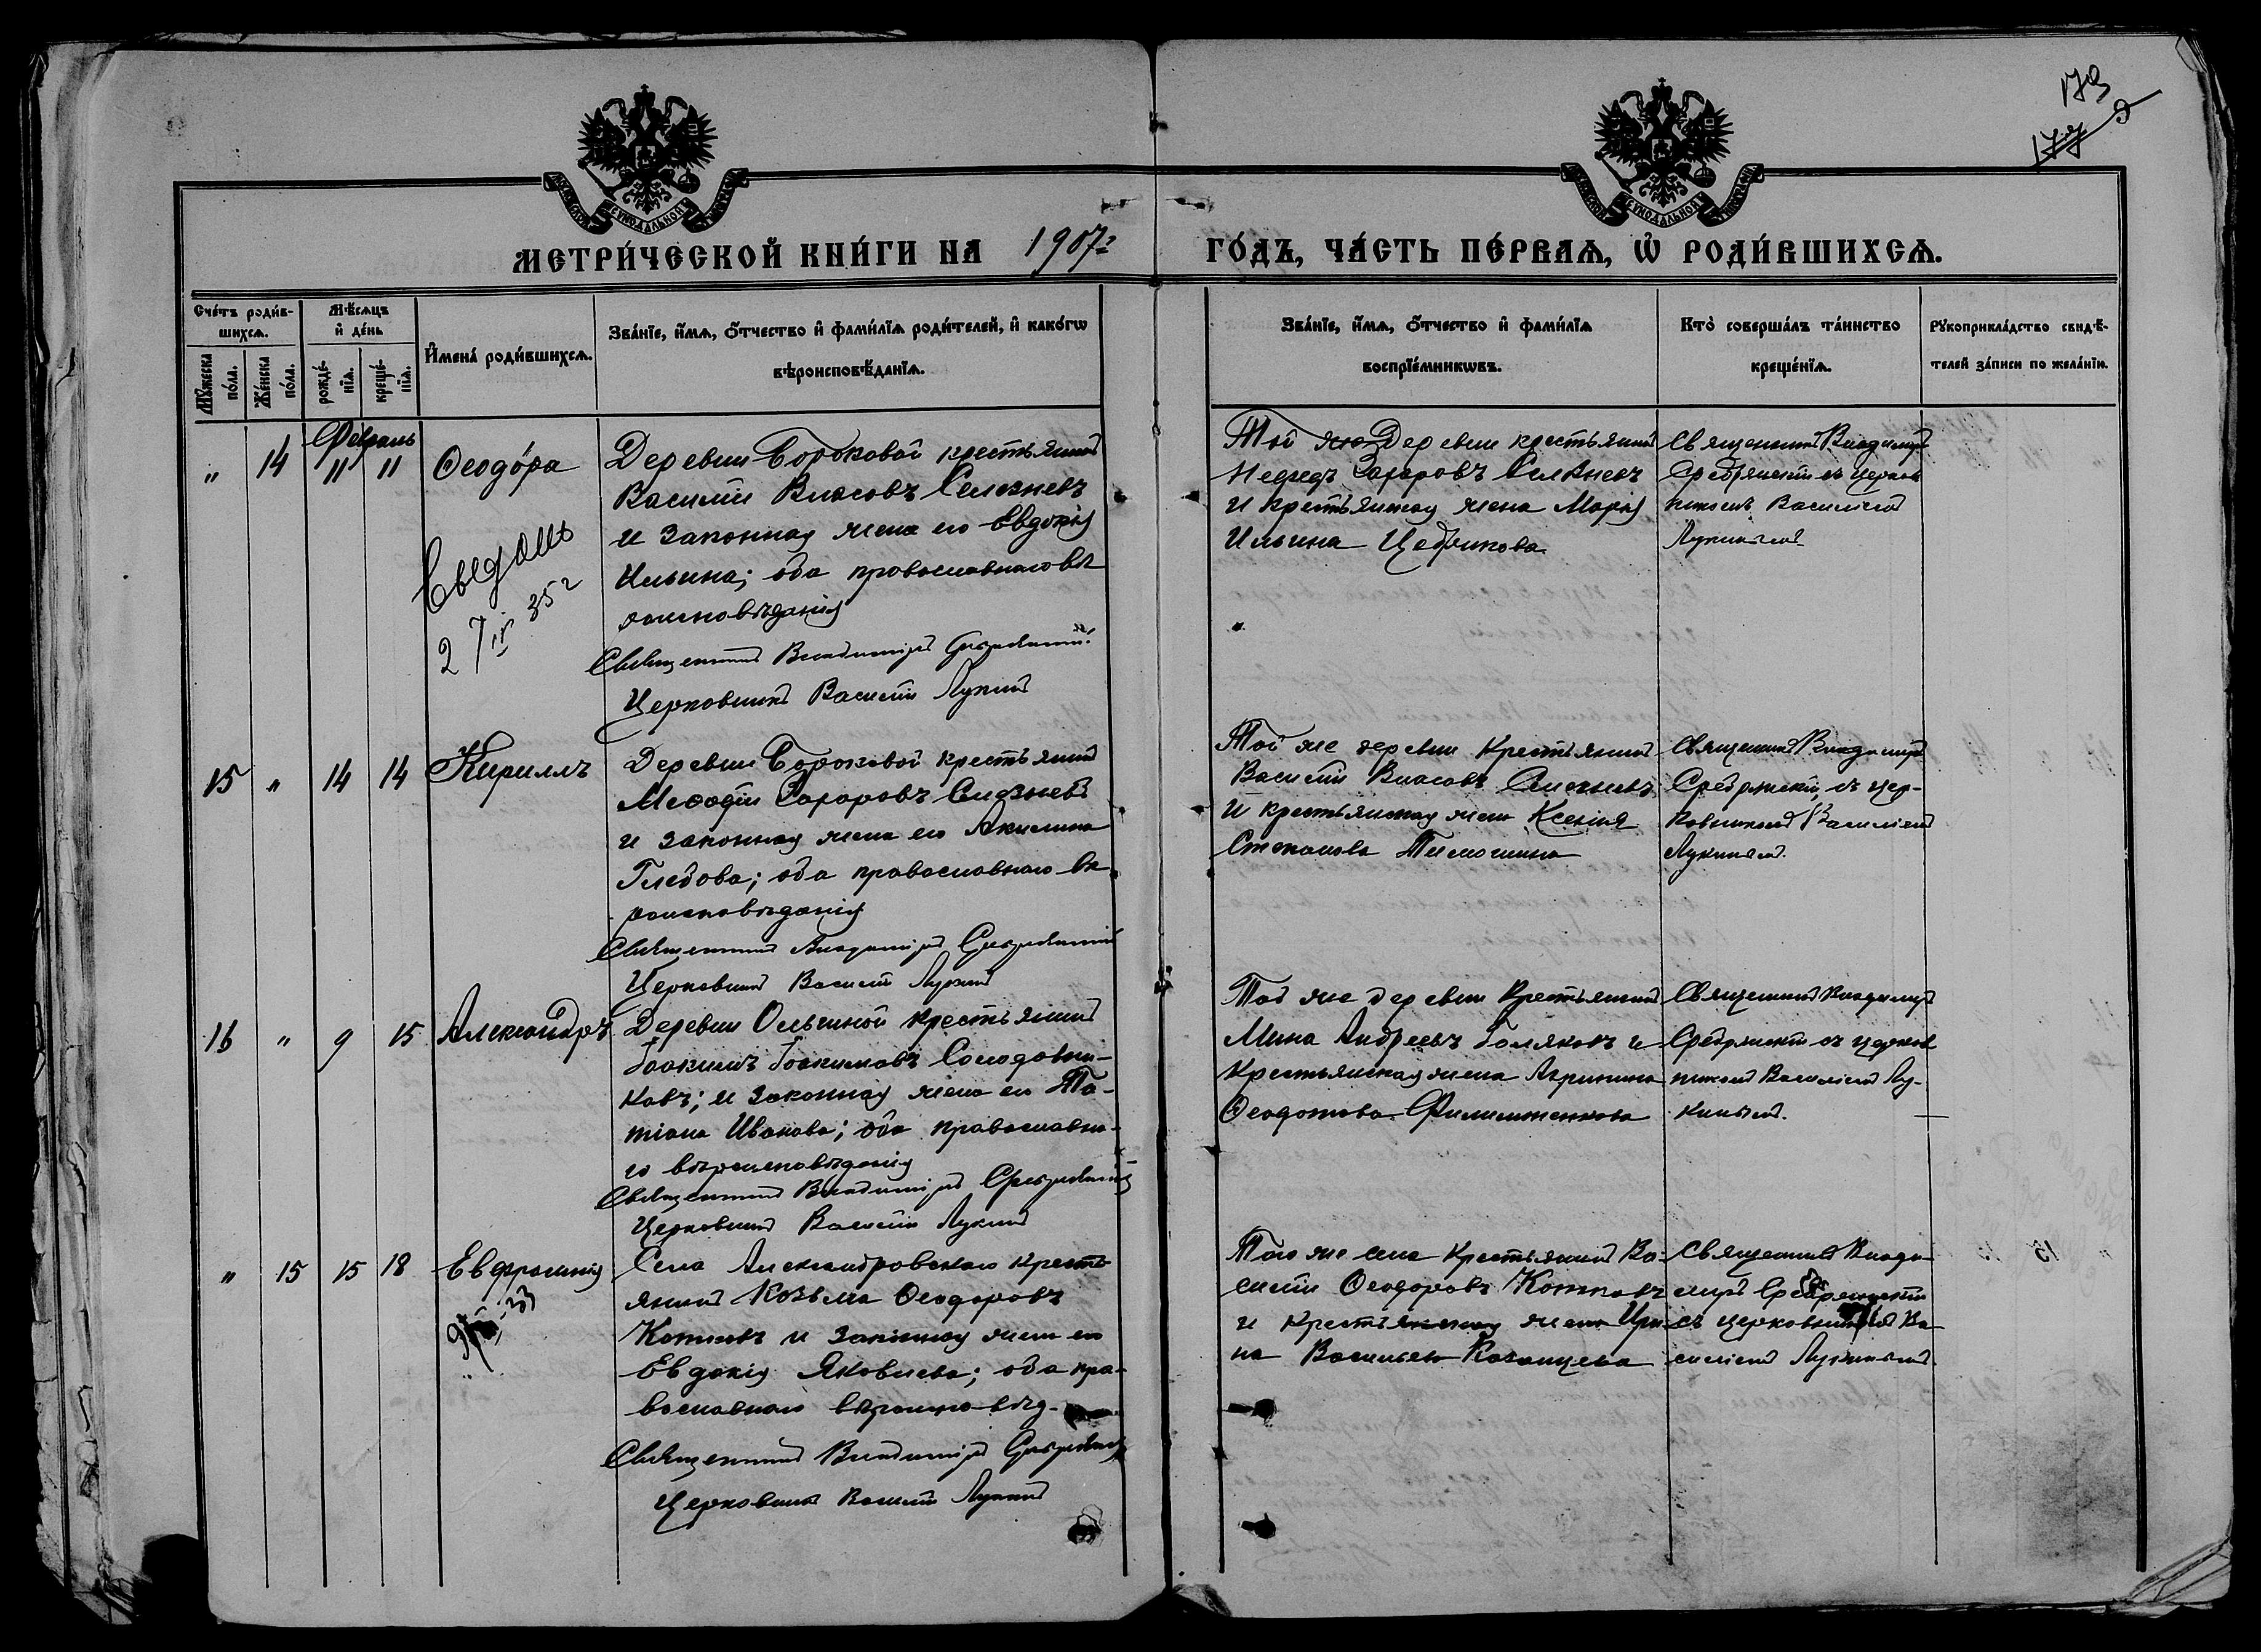 173
177
МЕТРИ́ЧЕСКОЙ КНИ́ГИ НА 1907 г
ГО́ДЪ, ЧА́СТЬ ПЕ́РВАѦ, Ѽ РОДИ́ВШИХСѦ.
Сче́тъ роди́в-
шихсѧ.
Мꙋ́жеска
по́ла.
Же́нска
по́ла.
Мѣ́сѧцъ
и де́нь
рожде́-
нїѧ.
креще́-
нїѧ.
Имена̀ роди́вшихсѧ.
Зва́нїе, и́мѧ, ѻ́тчество и фами́лїѧ роди́телей, и како́гѡ
вѣроисповѣ́данїѧ.
Зва́нїе, и́мѧ, ѻ́тчество и фами́лїѧ
воспрїе́мникѡвъ.
Кто̀ соверша́лъ та́инство
креще́нїѧ.
Рꙋкоприкла́дство свидѣ́-
телей за́писи по жела́нїю.
Февраль
" 14 11 11 Ѳеодо́ра
Деревни Сороковой крестьянинъ
Василій Власовъ Селезневъ
и законная жена его Евдокія
Ильина; оба православнаго вѣ
роисповѣданія
Священникъ Владиміръ Сребрянскій
Церковникъ Василій Лукинъ
Той же Деревни крестьянинъ
Захаровъ Селезневъ
и крестьянская жена Марія
Ильина Цебрикова
Священникъ Владиміръ
Сребрянскій съ церков
никомъ Василіемъ
Лукинымъ
15 " 14 14 Кириллъ
Деревни Сороковой крестьянинъ
Меѳодій Захаровъ Селезневъ
и законная жена его Акилина
Глебова; оба православнаго вѣ
роисповѣданія
Священникъ Владиміръ Сребрянскій
Церковникъ Василій Лукинъ
Той же деревни Крестьянинъ
Василій Власовъ Селезневъ
и крестьянская жена Ксенія
Степанова Тимошина
Священникъ Владиміръ
Сребрянскій, съ цер-
ковникомъ Василіемъ
Лукинымъ.
16 " 9 15 Александръ
Деревни Ольгиной крестьянинъ
Іоакимъ Іоакимовъ Солодовни-
ковъ; и законная жена его Та-
тіана Иванова; оба православна-
го вѣроисповѣданія
Священникъ Владиміръ Сребрянскій
Церковникъ Василій Лукинъ
Той же деревни Крестьянинъ
Мина Андреевъ и
Крестьянская жена Агрипина
Ѳеодотова
Священникъ Владиміръ
Сребрянскій съ церков
никомъ Василіемъ Лу-
кинымъ.
" 15 15 18 Евфросинія
Села Александровскаго кресть
янинъ Козьма Ѳеодоровъ
Котковъ и законная жена его
Евдокія Яковлева; оба пра-
вославнаго вѣроисповѣд.
Священникъ Владиміръ Сребрянскій
Церковникъ Василій Лукинъ
Того же села Крестьянинъ Ва-
силій Ѳеодоровъ Котковъ
и Крестьянская жена Ири-
на Васильева Казанцева
Священникъ Влади-
миръ Сребрянскій
съ церковникомъ Ва
силіемъ Лукинымъ